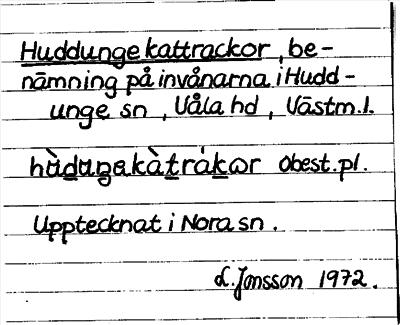 Huddunge kattrackor, be-
nämning på invånarna i Hudd-
unge sn, Våla hd, Västm.l.
hùduŋekàtrákor obest.pl.
Upptecknat i Nora sn.
L. Jonsson 1972.